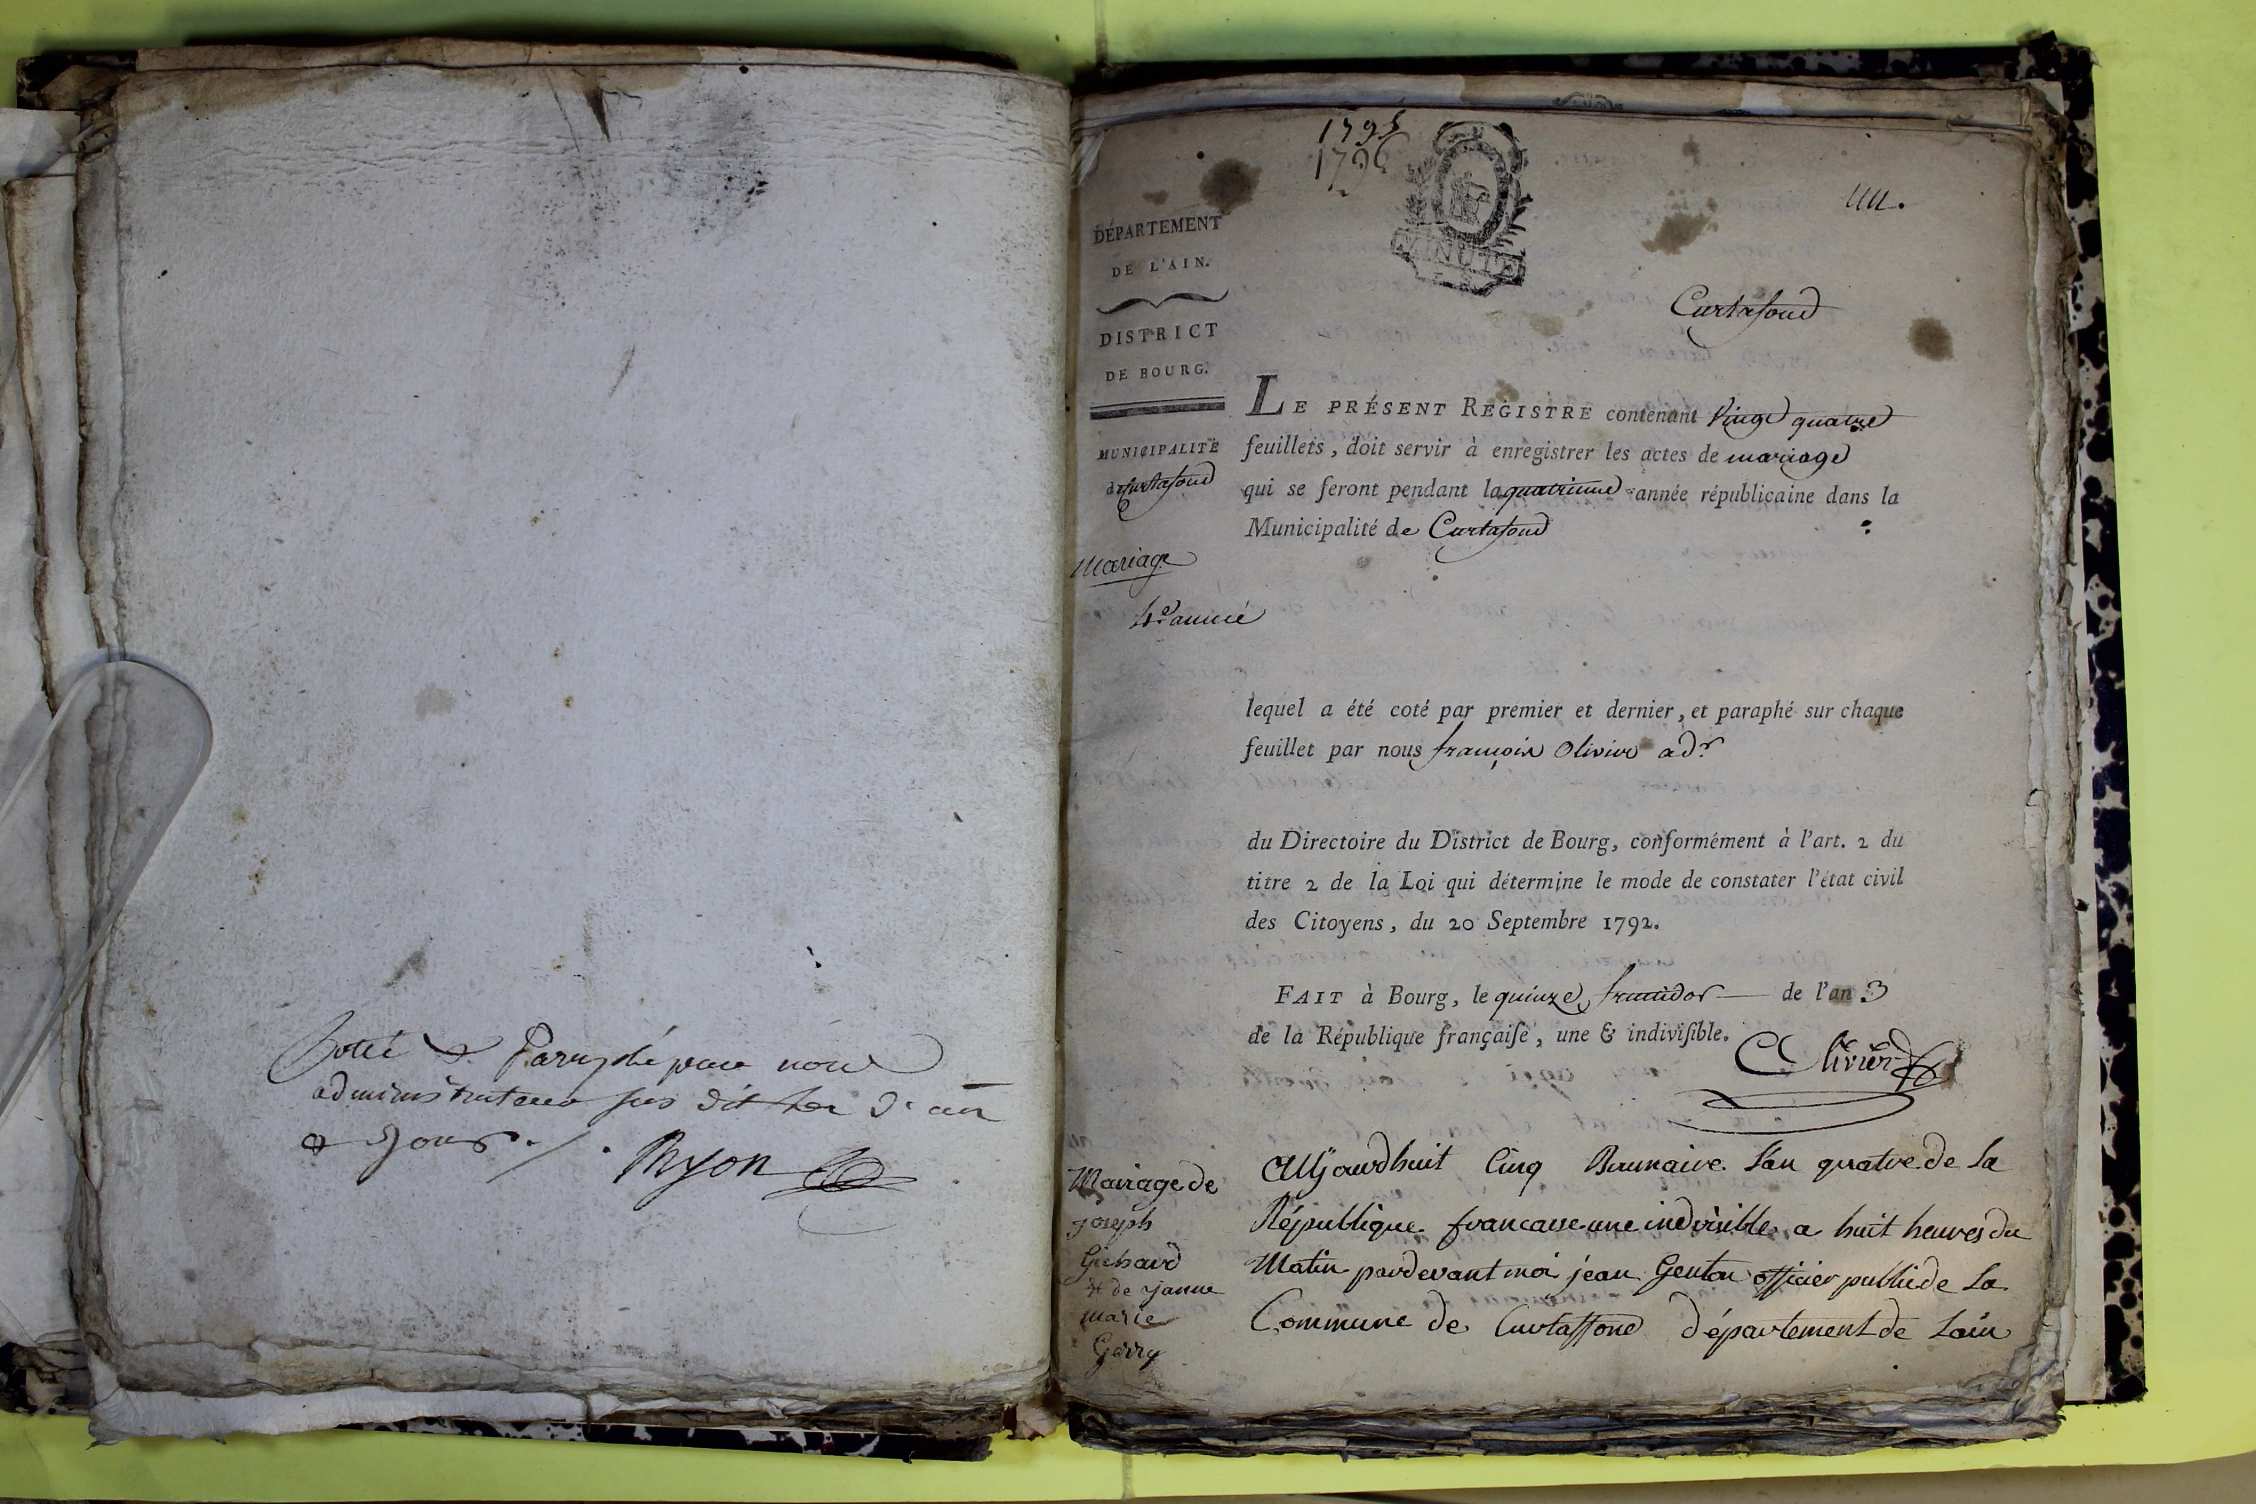 Cotté & Paraphé par nous
administrateur sus dit les d. an
& Jour ./.
Ryon
1795
1796
MINUTE
un.
DÉPARTEMENT
DE L'AIN.
DISTRICT
DE BOURG.
MUNICIPALITÉ
de Curtafond
Mariage
4e année
Curtafond
LE PRÉSENT REGISTRE contenant vingt quatre
feuillets, doit servir à enregistrer les actes de mariage
qui se feront pendant la quatrieme année républicaine dans la
Municipalité de Curtafond
lequel a été coté par premier et dernier, et paraphé sur chaque
feuillet par nous françois Olivier adr
du Directoire du District de Bourg, conformément à l'art. 2 du
titre 2 de la Loi qui détermine le mode de constater l'état civil
des Citoyens, du 20 Septembre 1792.
FAIT à Bourg, le quinze fructidor de l'an 3
de la République françaiſe, une & indiviſible.
Olivier
Mariage de
joseph
Gichard
& de janne
marie
Gerry
Aujourdhuit Cinq Brumaire l'an quatre de la
République francaise une indvisible a huit heures du
Matin pardevant moi jean Genton officier public de la
Commune de Curtaffond département de Lain